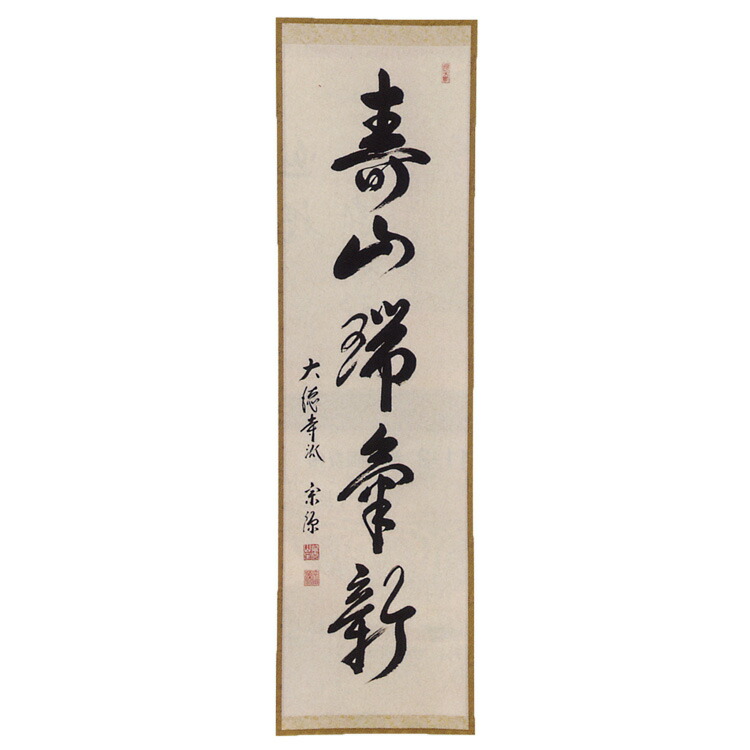 寿山瑞氣新
大徳寺派 宗源